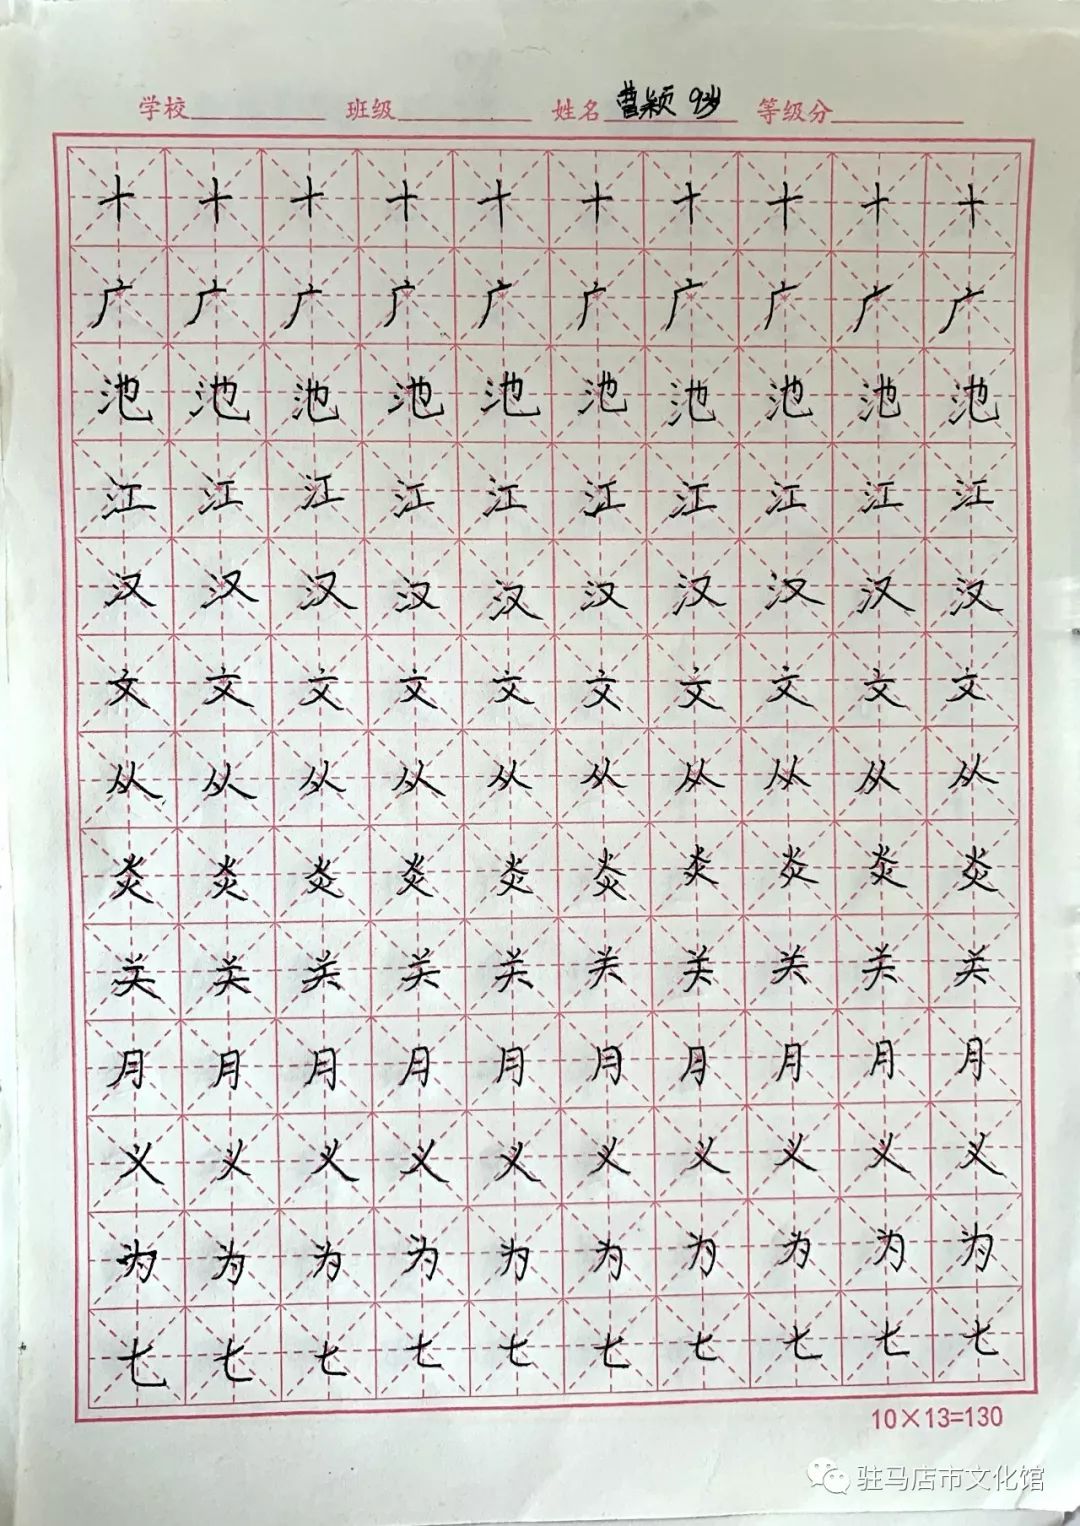 学校 班级 姓名 曹颖 9岁 等级分
十 十 十 十 十 十 十 十 十 十
广 广 广 广 广 广 广 广 广 广
池 池 池 池 池 池 池 池 池 池
江 江 江 江 江 江 江 江 江 江
汉 汉 汉 汉 汉 汉 汉 汉 汉 汉
文 文 文 文 文 文 文 文 文 文
从 从 从 从 从 从 从 从 从 从
炎 炎 炎 炎 炎 炎 炎 炎 炎 炎
关 关 关 关 关 关 关 关 关 关
月 月 月 月 月 月 月 月 月 月
义 义 义 义 义 义 义 义 义 义
为 为 为 为 为 为 为 为 为 为
七 七 七 七 七 七 七 七 七 七
10×13=130
驻马店市文化馆